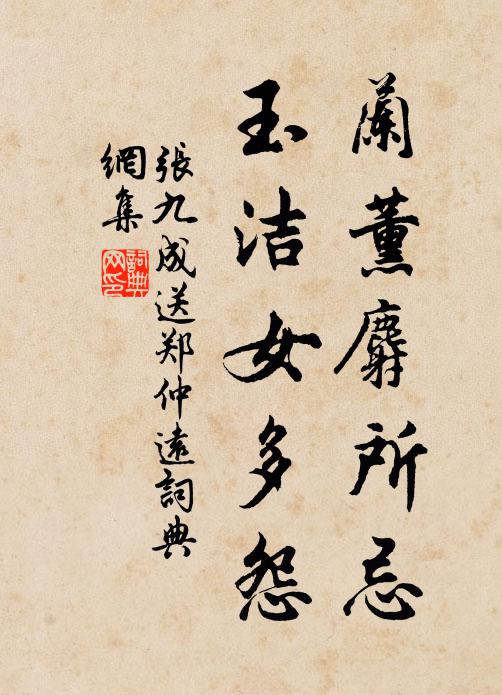 蘭薰麝所忌
玉洁女多怨
張九成送郑仲遠詞典
網集
詞典
网印